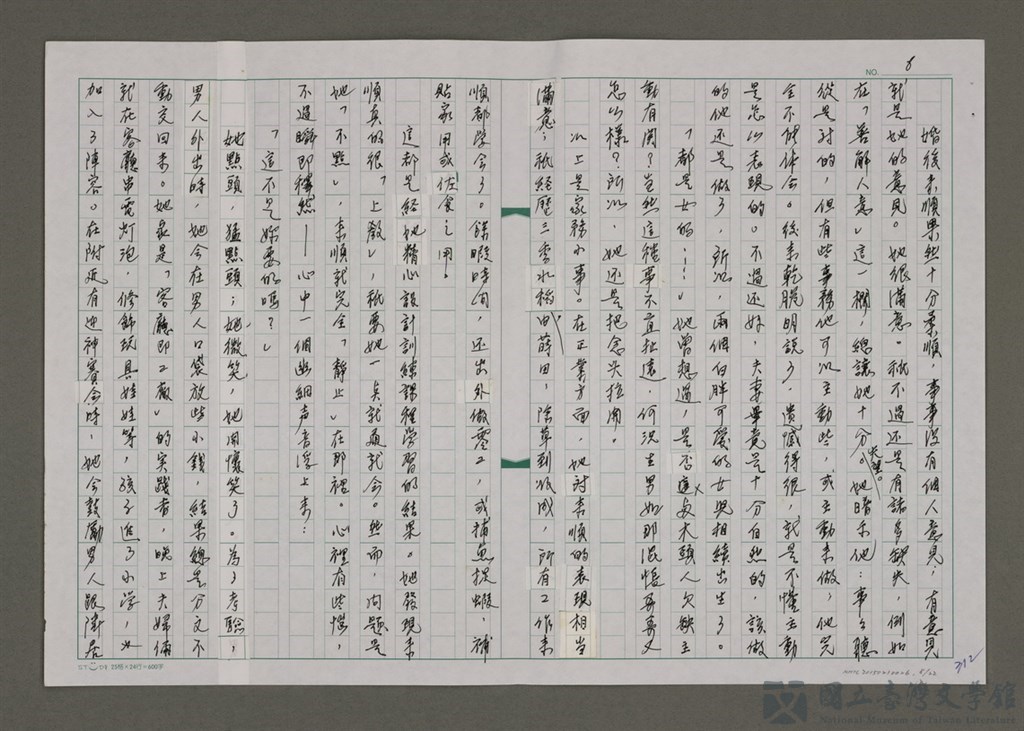 NO. 8
婚後來順果然十分柔順，事事沒有個人意見，有意見
就是她的意見。她很滿意。祇不過還是有諸多缺失，例如
在「善解人意」這一欄，總讓她十分失望。她暗示他：事事聽
從是對的，但有些事務他可以主動些，或主動來做，他完
全不能体会。後來乾脆明說了，遺憾得很，就是不懂主動
是怎么表現的。不過还好，夫妻畢竟是十分自然的，該做
的他还是做了，所以，兩個白胖可愛的女兒相續出生了。
「都是女的……」她曾想過，是否這与木頭人欠缺主
動有関？当然這種事不宜扯遠，何況生男如那混帳哥哥又
怎么樣？所以，她还是把念头拉開。
以上是家務小事。在正業方面，她對來順的表現相当
滿意；祇經歷三季水稻田蒔田，除草到收成，所有工作來
順都学会了。餘暇時间，还出外做零工，或捕魚捉蝦，補
貼家用或佐食之用。
這都是經她精心設計訓練課程学習的結果。她發現來
順真的很「上教」，祇要她一点就通就会。然而，问題是
她「不點」，來順就完全「靜止」在那裡。心裡有些惱，
不過瞬即釋然——心中一個幽細声音浮上來：
「這不是妳要的嗎？」
她點頭，猛點頭；她微笑，她開懷笑了。為了考驗，
男人外出時，她会在男人口袋放些小錢，結果總是分文不
動交回來。她家是「客廳即工廠」的实踐者，晚上夫婦倆
就在客廳串電灯泡，修飾玩具娃娃等，孩子進了小学，也
加入了陣容。在附近有迎神賽会時，她会鼓勵男人跟隣居
25格×24行=600字
312
國立臺灣文學館
National Museum of Taiwan Literature